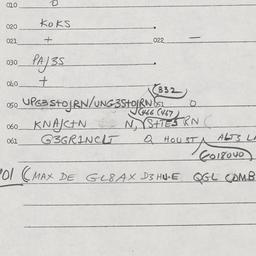 010 0
020 KOKS
021 + 022 —
030 PAJ3S
040 +
(332
050 UPG3S+OJRN/UNG3S+OJRN 051 0
(466 (467
060 KNAJC+N N, S+TES RN (
061 G3GR1NCLT Q HOUST ALTS LA
(018040
01 (MAX DE GL8AX D3HU-E QGL COMB